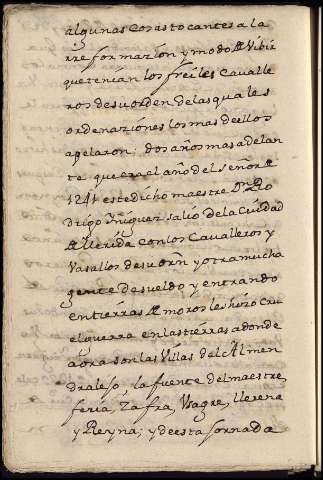 algunas cosas tocantes a la
rreformazion y modo de vibir
que tenian los freiles cavalle
ros de su orden de las quales
ordenaziones los mas de ellos
apelaron; dos años mas adelan
te que era el año del señor de
1241 este dicho maestre Dn Ro
drigo Yñiguez salio de la Ciudad
de Merida con los Cavalleros y
Vasallos de su orn y otra mucha
gente de sueldo y entrando
en tierras de moros les hizo cru
el guerra en las tierras a donde
aora son las Villas del Almen
dralejo, la fuente del maestre,
feria, Zafra, Vsagre, llerena
y Reyna; y de esta Jornada